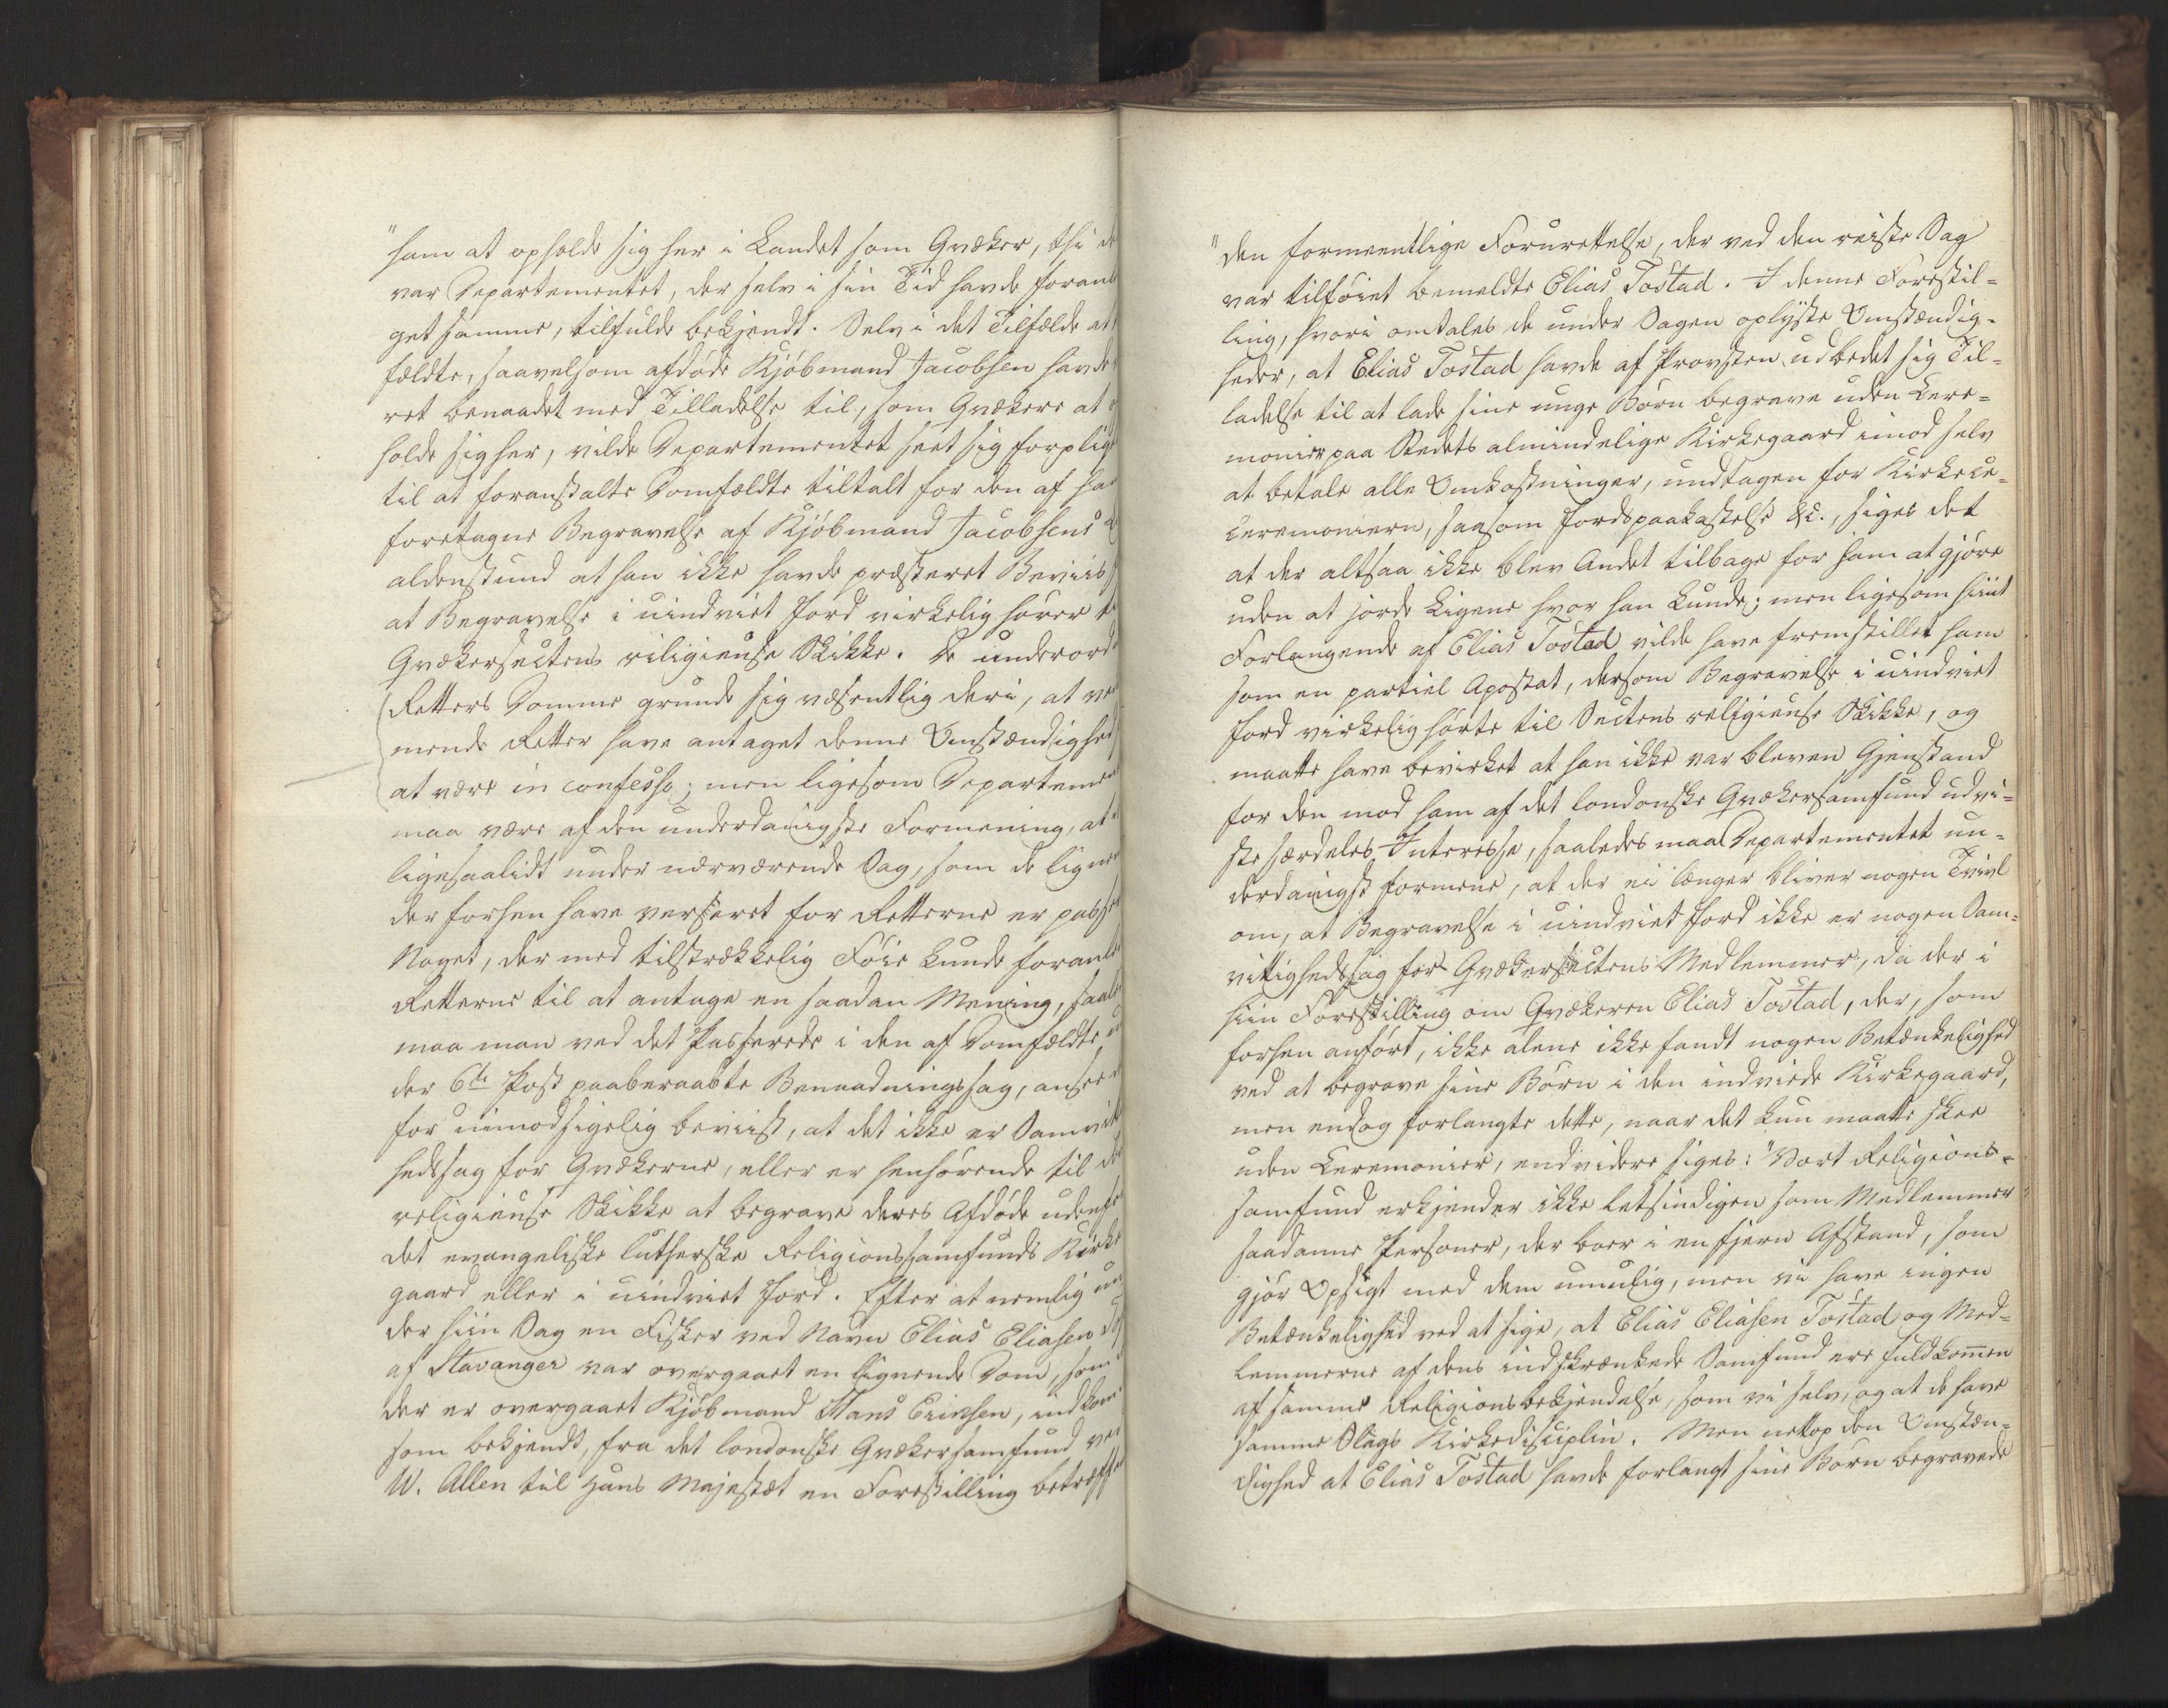 "ham at opholde sig her i Landet som Qvæker, thi
var Departementet, der selv i sin Tid havde foran
get samme, tilfulde bekjendt. Selv i det Tilfælde at
fældte, saavelsom afdøde Kjöbmand Jacobsen havde
ret benaadet med Tilladelse til, som Qvækere at
holde sig her, vilde Departementet seet sig forplig
til at foranstalte Domfældte tiltalt for den af ha
foretagne Begravelse af Kjöbmand Jacobsens
aldenstund at han ikke havde præsteret Beviis
at Begravelse i uindviet Jord virkelig hører
Qvækersectens religieuse Skikke. De underord
Retters Domme grunde sig væsentlig deri, at ved
mende Retter have antaget denne Omstændighed
at være in confesso; men ligesom Departemen
maa være af den underdanigste Formening, at
ligesaalidt under nærværende Sag, som de ligne
der forhen have verseret for Retterne er passe
Noget, der med tilstrækkelig Föie kunde foranle
Retterne til at antage en saadan Mening, saale
maa man ved det Passerede i den af Domfældte
der 6te Post paaberaabte Benaadningssag, ansee
for uimodsigelig beviist, at det ikke er Samvit
hedssag for Qvækerne, eller er henhörende til de
religieuse Skikke at begrave deres Afdöde udenfo
det evangeliske lutherske Religionssamfunds Kirke
gaard eller i uindviet Jord. Efter at nemlig un
der hiin Sag en Fisker ved Navn Elias Eliasen
af Stavanger var overgaaet en lignende Dom, som
der er overgaaet Kjöbmand Hans Eriksen, indkom
som bekjendt, fra det londonske Qvækersamfund ved
W. Allen til Hans Majestæt en Forestilling betræff
"den formeentlige Forurettelse, der ved den reiste Sag
var tilföiet bemeldte Elias Tostad. I denne Forestil=
ling, hvori omtales de under Sagen oplyste Omstændig=
heder, at Elias Tostad havde af Provsten udbedet sig Til=
ladelse til at lade sine unge Börn begrave uden Cere=
monier paa Stedets almindelige Kirkegaard imod selv
at betale alle Omkostninger, undtagen for Kirkece=
ceremonierne, saasom Jordspaakastelse &c., siges det
at der altsaa ikke blev Andet tilbage for ham at gjöre
uden at jorde Ligene hvor han kunde; men ligesom hiint
Forlangende af Elias Tostad vilde have fremstillet ham
som en partiel Apostat, dersom Begravelse i uindviet
Jord virkelig hörte til Sectens religieuse Skikke, og
maatte have bevirket at han ikke var bleven Gjenstand
for den mod ham af det londonske Qvækersamfund udvi=
ste særdeles Interesse, saaledes maa Departementet un=
derdanigst formene, at der ei længer bliver nogen Tvivl
om, at Begravelse i uindviet Jord ikke er nogen Sam=
vittighedssag for Qvækersectens Medlemmer, da der i
hiin Forestilling om Qvækeren Elias Tostad, der, som
forhen anfört, ikke alene ikke fandt nogen Betænkelighed
ved at begrave sine Börn i den indviede Kirkegaard,
men endog forlangte dette, naar det kun maatte skee
uden Ceremonier, endvidere siges: "Vort Religions=
samfund erkjender ikke letsindigen som Medlemmer
saadanne Personer, der boer i en fjern Afstand, som
gjör Opsigt med dem umulig, men vi have ingen
Betænkelighed ved at sige, at Elias Eliasen Tostad og Med=
lemmerne af dens indskrænkede Samfund ere fuldkommen
af samme Religionsbekjendelse, som vi selv, og at de have
samme Slags Kirkedisciplin. Men netop den Omstæn=
dighed at Elias Tostad havde forlangt sine Börn begravede